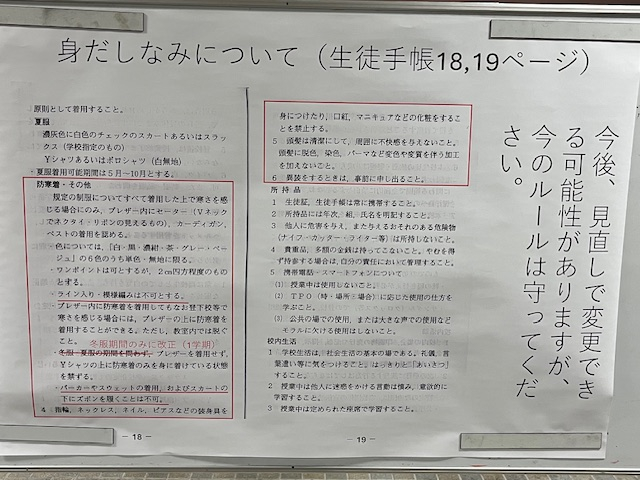 身だしなみについて（生徒手帳18,19ページ）
原則として着用すること。
夏服
濃灰色に白色のチェックのスカートあるいはスラ
ックス（学校指定のもの）
Yシャツあるいはポロシャツ（白無地）
・夏服着用可能期間は5月－10月とする。
防寒着・その他
規定の制服についてすべて着用した上で寒さを感
じる場合にのみ、ブレザー内にセーター（Vネック
でネクタイ・リボンの見えるもの）、カーディガン、
ベストの着用を認める。
・色については、『白・黒・濃紺・茶・グレー・ベー
ジュ』の6色のうち単色・無地に限る。
・ワンポイントは可とするが、2cm四方程度のもの
とする。
・ライン入り・模様編みは不可とする。
・ブレザー内に防寒着を着用してもなお登下校等で
寒さを感じる場合には、ブレザーの上に防寒着を
着用することができる。ただし、教室内では脱ぐ
こと。
冬服期間のみに改正（1学期）
・冬服・夏服の期間を問わず、ブレザーを着用せず、
Yシャツの上に防寒着のみを身に着けている状態
を禁ずる。
・パーカーやスウェットの着用、およびスカートの
下にズボンを履くことは不可。
4　指輪、ネックレス、ネイル、ピアスなどの装身具を
－18－
身につけたり、口紅、マニキュアなどの化粧をするこ
とを禁止する。
5　頭髪は清潔にして、周囲に不快感を与えないこと。
頭髪に脱色、染色、パーマなど変色や変質を伴う加工
を加えないこと。
6　異装をするときは、事前に申し出ること。
所持品
1　生徒証、生徒手帳は常に携帯すること。
2　所持品には年次、組、氏名を明記すること。
3　他人に危害を与え、また与えるおそれのある危険物
（ナイフ・カッター・ライター等）は所持しないこと。
4　貴重品、多額の金銭は持ってこない。やむを得
ず持参する場合は、自分の責任において管理すること。
5　携帯電話・スマートフォンについて
(1) 授業中は使用しないこと。
(2) TPO（時・場所・場合）に応じた使用の仕方を
学ぶこと。
(3) 公共の場での使用、または大きな声での使用など
モラルに欠ける使用はしないこと。
校内生活
1　学校生活は、社会生活の基本の場である。礼儀、言
葉遣い等に気をつけること。はっきりと『あいさつ』
すること。
2　授業中は他人に迷惑をかける言動は慎み、意欲的に
学習すること。
3　授業中は定められた座席で学習すること。
－19－
今後、見直しで変更でき
る可能性がありますが、
今のルールは守ってくだ
さい。